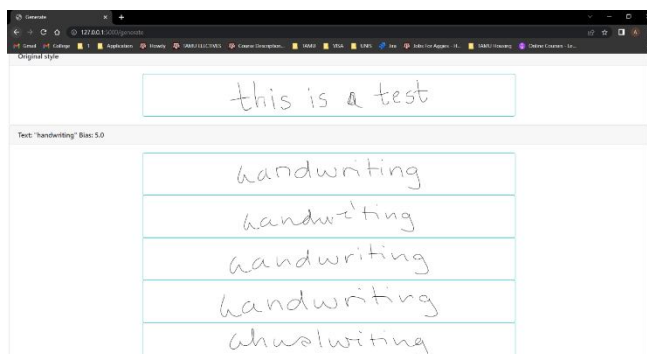 Generate
127.0.0.1:5000/generate
Gmail College 1 1 Application Howdy TAMU ELECTIVES Course Description... TAMU VISA UNIS Jira Jobs For Aggies - H... TAMU Housing Online Courses - Le...
Original style
this is a test
Text: "handwriting" Bias: 5.0
handwriting
handwriting
handwriting
handwriting